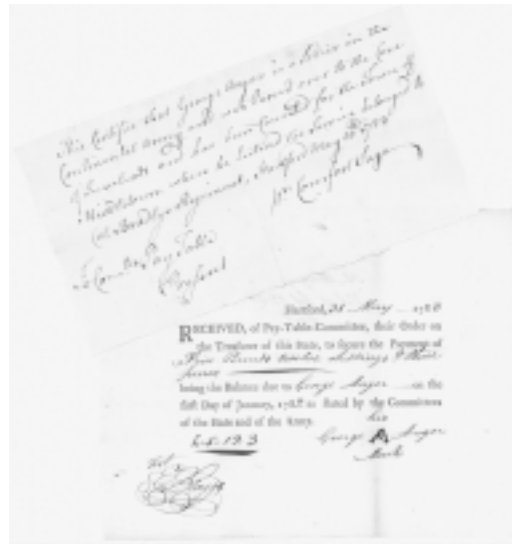 This Certifies that George Anger is a Soldier in the
Continental Army and was turned over to the Corps
of Invalids and has been Counted for the Town of
Middletown where he Listed the Service belonged to
Col Bradleys Regiment, Hartford May 1788
Comfort Sage
To Comttee Pay Table
Present
Hartford, May 1788
RECEIVED, of Pay-Table-Committee, their Order on
the Treasurer of this State, to secure the Payment of
Pounds twelve shillings & three
pence
being the Balance due to George Anger on the
first Day of January, 178 as stated by the Committees
of the State and of the Army.
his
12.3
George A Anger
Mark